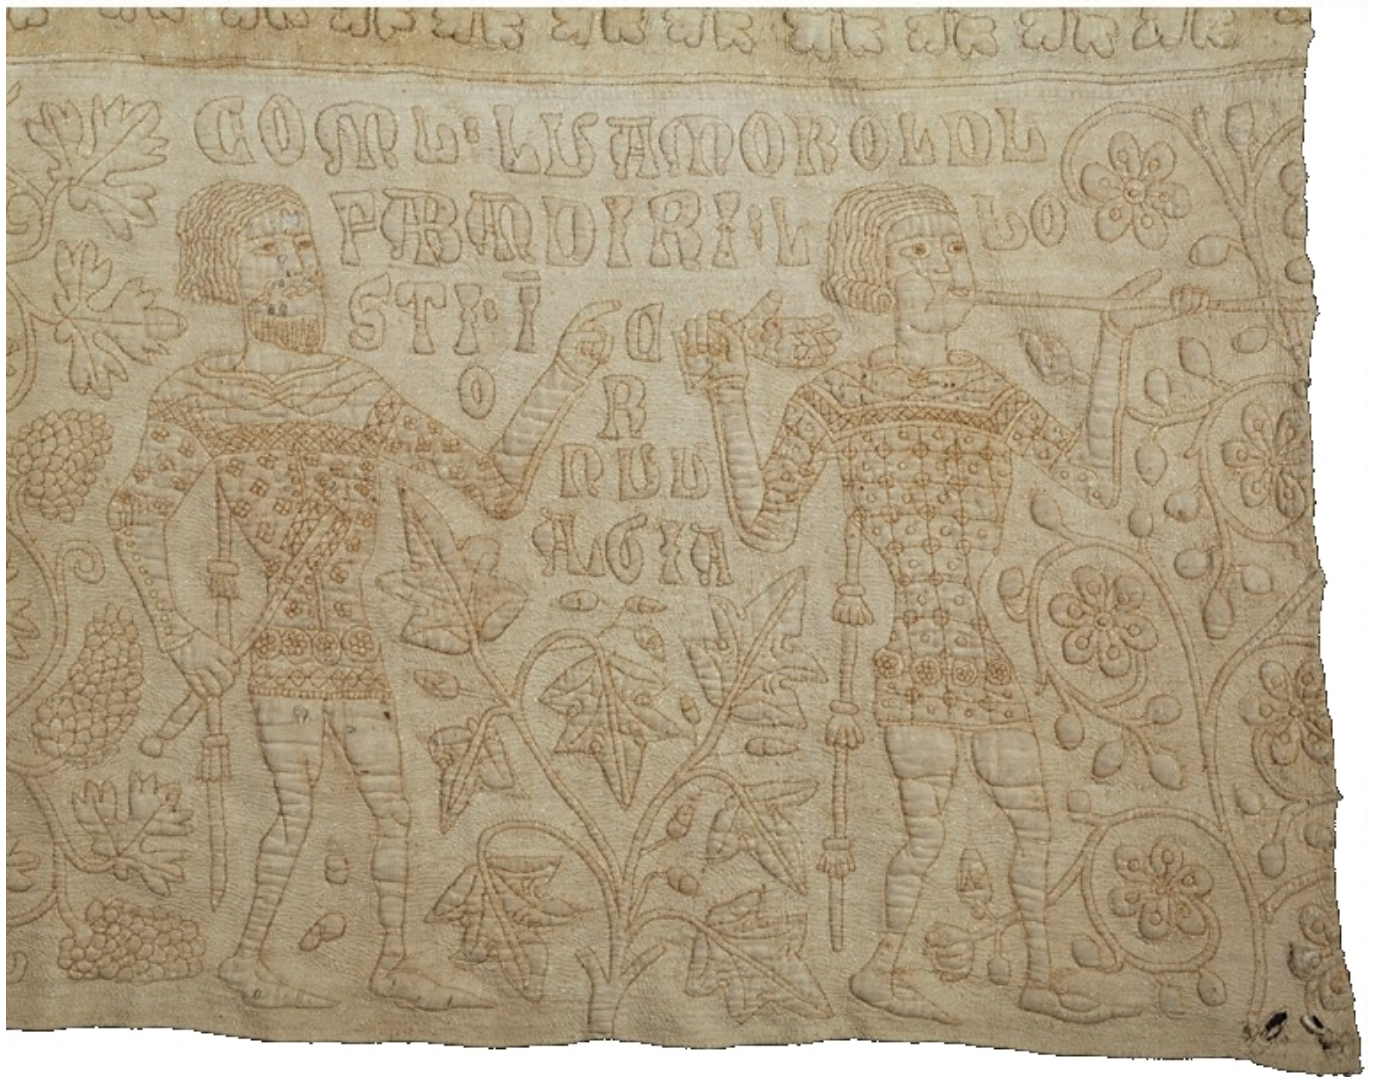 COMU: LU AMOROLDU
FA BADIRI: L U O
STI: Ī C
O R
NUU
ALGIA